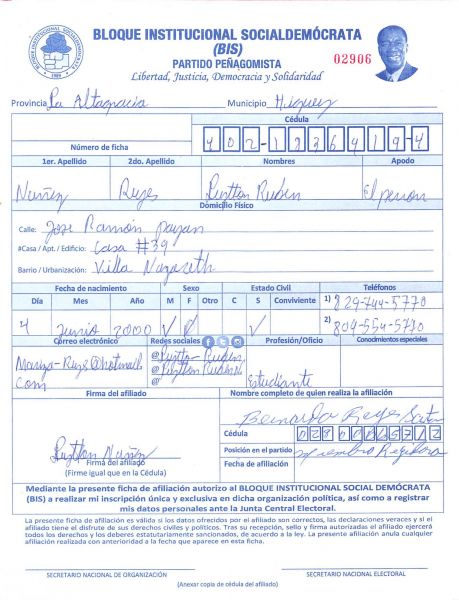 BLOQUE INSTITUCIONAL SOCIALDEMÓCRATA
(BIS)
PARTIDO PEÑAGOMISTA
Libertad, Justicia, Democracia y Solidaridad
02906
Provincia La Altagracia Municipio Higuey
Cédula
Número de ficha
1er. Apellido 2do. Apellido Nombres Apodo
Nuñez Reyes Ruben El peron
Domicilio Físico
Calle: Jose Ramón payan
#Casa / Apt. / Edificio: Casa #39
Barrio / Urbanización: Villa Nazareth
Fecha de nacimiento Sexo Estado Civil Teléfonos
Día Mes Año M F Otro C S Conviviente 1) 829-744-5770
4 Junio 2000 2) 809-554-5770
Correo electrónico Redes sociales Profesión/Oficio Conocimientos especiales
Estudiante
Firma del afiliado Nombre completo de quien realiza la afiliación
Bernarda Reyes
Cédula
Posición en el partido miembro
Fecha de afiliación
Nuñez
Firma del afiliado
(Firme igual que en la Cédula)
Mediante la presente ficha de afiliación autorizo al BLOQUE INSTITUCIONAL SOCIAL DEMÓCRATA
(BIS) a realizar mi inscripción única y exclusiva en dicha organización política, así como a registrar
mis datos personales ante la Junta Central Electoral.
La presente ficha de afiliación es válida si los datos ofrecidos por el afiliado son correctos, las declaraciones veraces y si el
afiliado tiene el disfrute de sus derechos civiles y políticos. Tras su recepción, sello y firma autorizadas el afiliado ejercerá
todos los derechos y los deberes estatutariamente sancionados, de acuerdo a la ley. La presente afiliación anula cualquier
afiliación realizada con anterioridad a la fecha que aparece en esta ficha.
SECRETARIO NACIONAL DE ORGANIZACIÓN SECRETARIO NACIONAL ELECTORAL
(Anexar copia de cédula del afiliado)